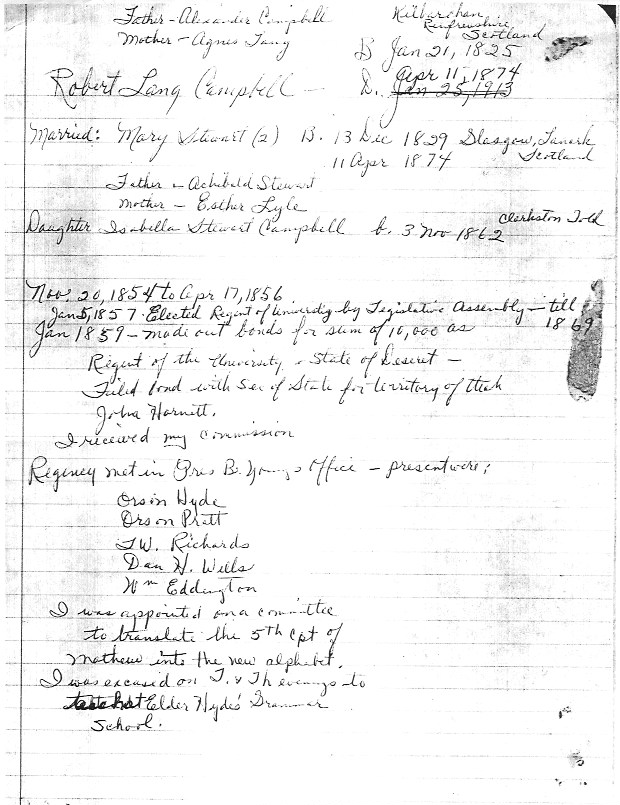 Father - Alexander Campbell
Mother - Agnes Lang
Kilbarchan
Renfrewshire,
Scotland
B Jan 21, 1825
Apr 11, 1874
Robert Lang Campbell - D. Jan 25, 1913
Married: Mary Stewart (2) B. 13 Dec 1829 Glasgow, Lanark
11 Apr 1874 Scotland
Father - Achibald Stewart
Mother - Esther Lyle
Daughter Isabella Stewart Campbell b. 3 Nov 1862
Nov. 20, 1854 to Apr 17, 1856
Jan 5, 1857 Elected Regent of University by Legislative Assembly - till
1869
Jan 1859 - made out bonds for sum of 10,000 as
Regent of the University - State of Deseret -
Filed bond with Sec of State for territory of Utah
John Hartnett.
I received my commission
Regency met in Pres B. Young's Office - present were;
Orson Hyde
Orson Pratt
F.W. Richards
Dan H. Wells
Wm Eddington
I was appointed on a committee
to translate the 5th cpt of
Mathew into the new alphabet.
I was excused on T. & Th evenings to
Elder Hyde's Grammar
School.